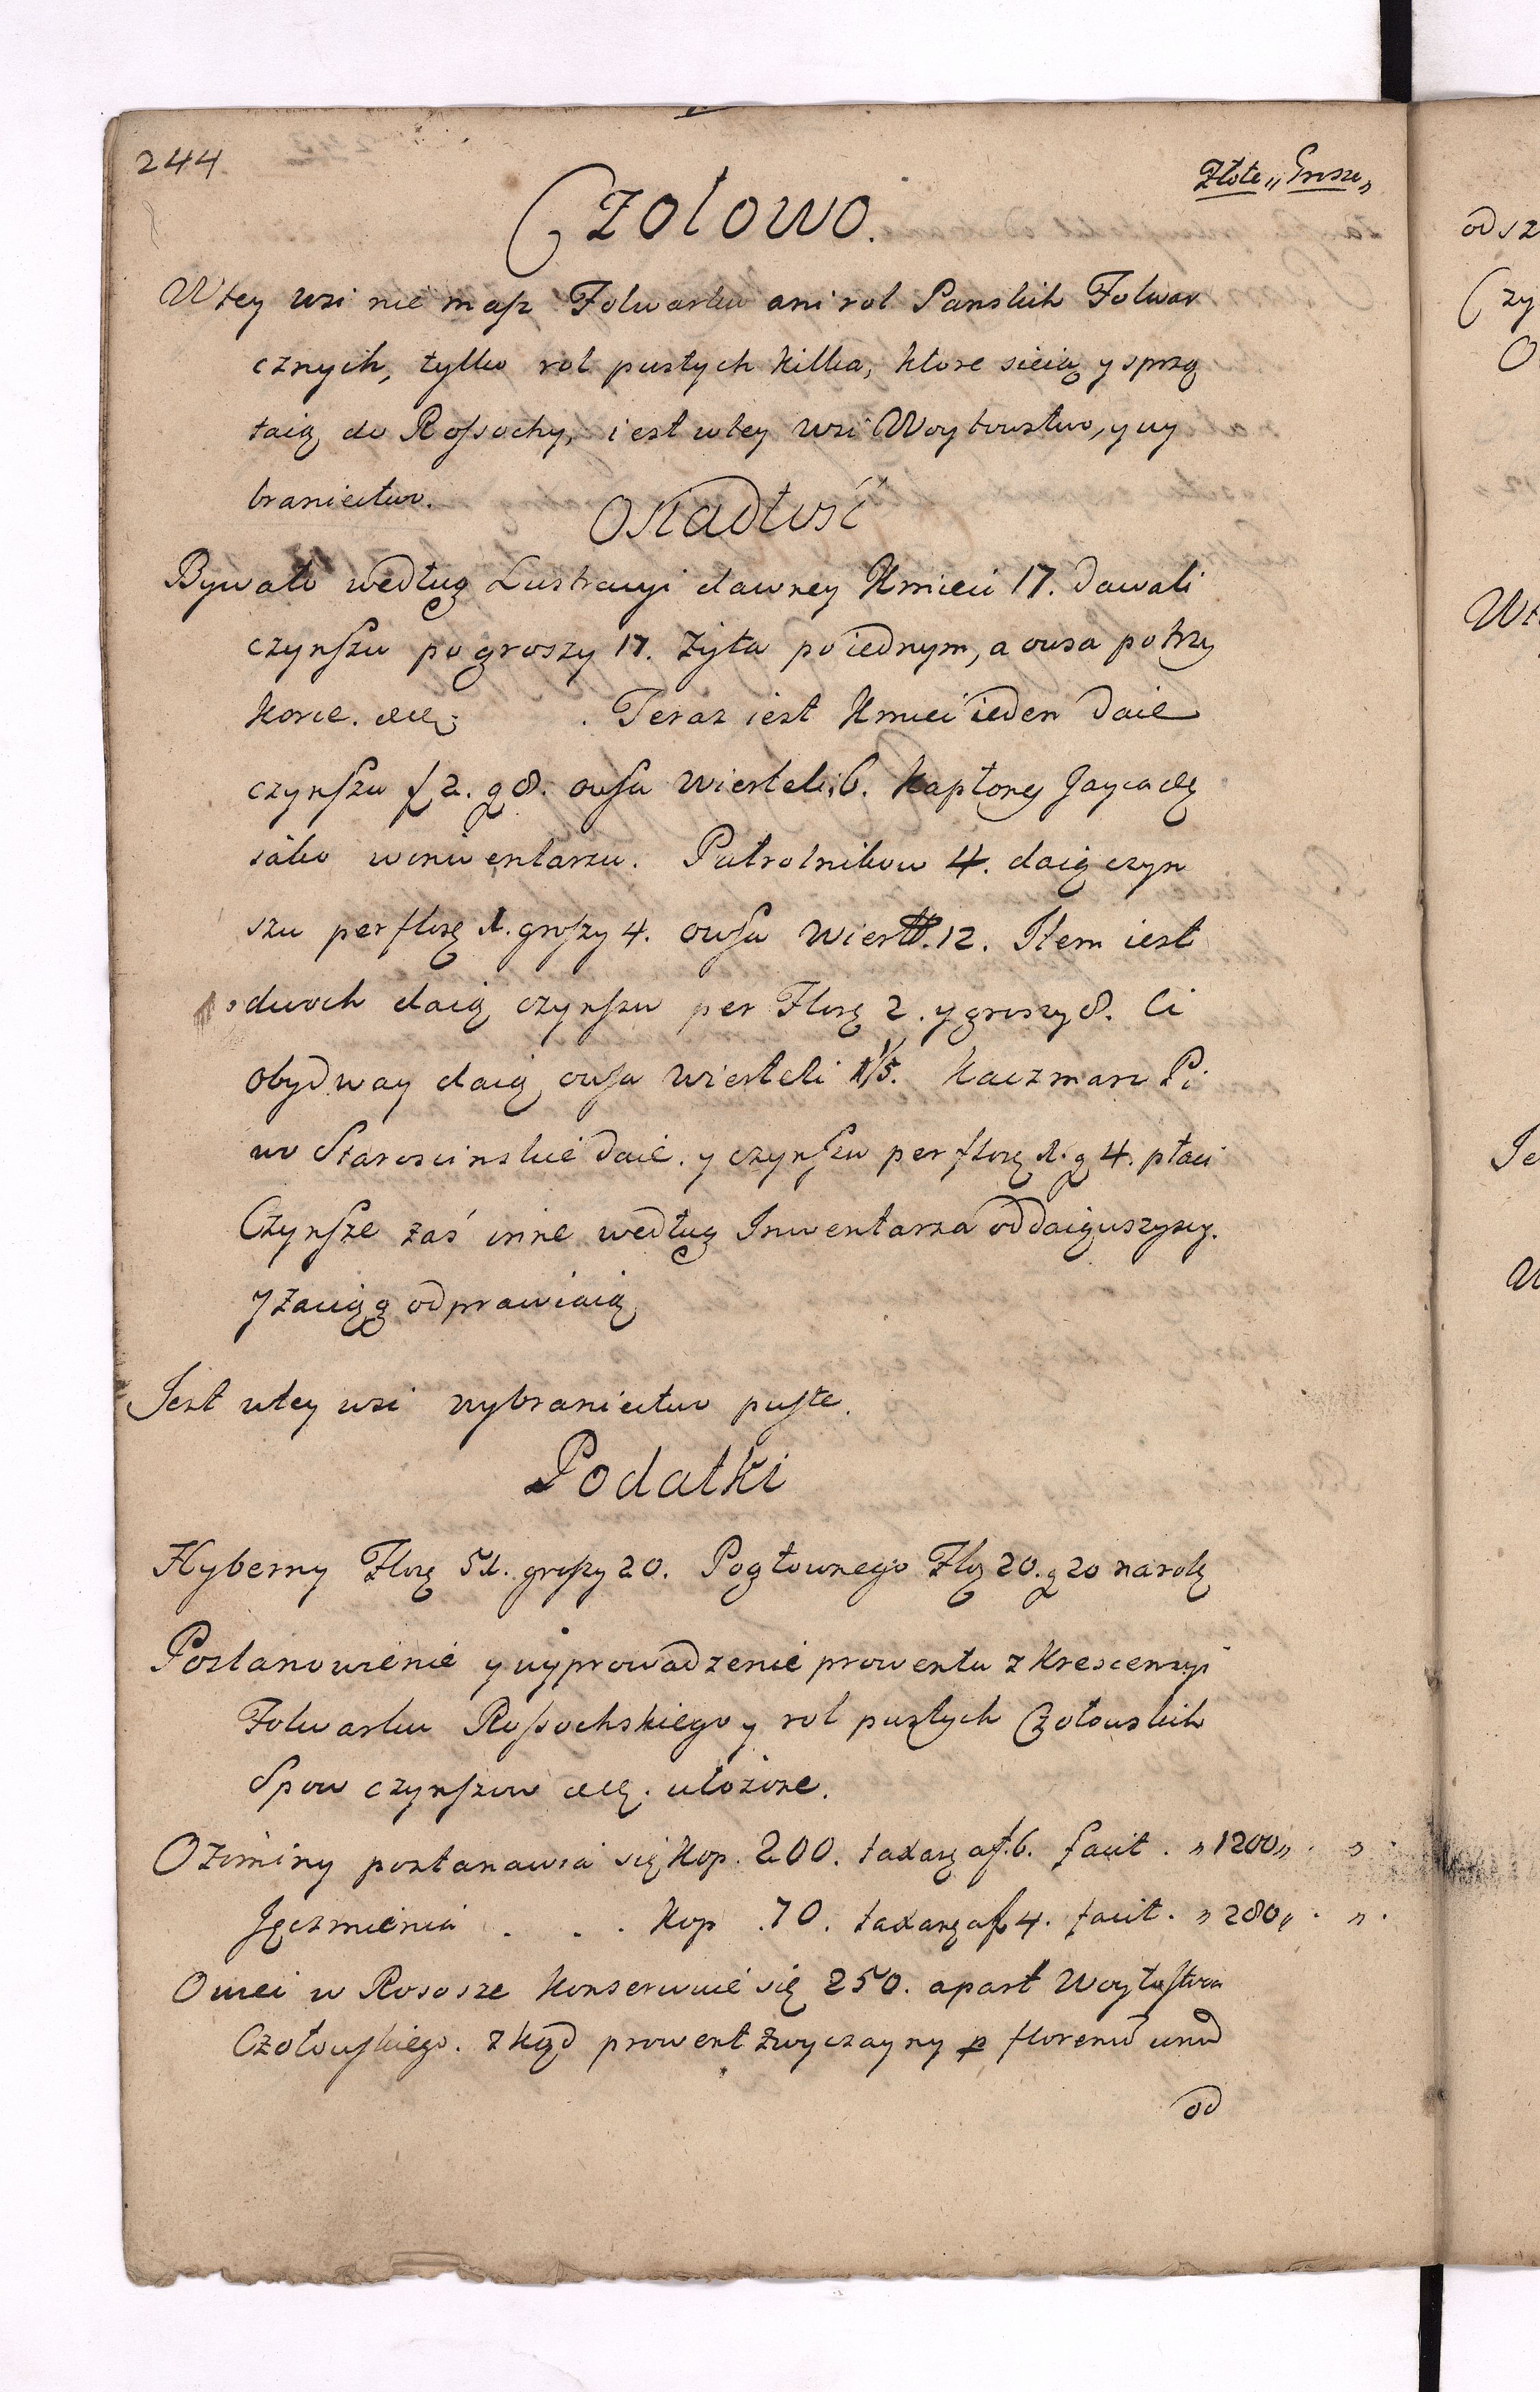 244
Złote „ Grosze „
Czołowo.
Wtey wsi nie masz Folwarku ani rol Panskich Folwar
cznych, tylko rol pustych kilka, ktore sieią y sprzą
taią do Rossochy, iest wtey wsi Woytowstwo, y wy
braniectwo.
Osiadłość
Bywało według Lustracyi dawney Kmieci 17. dawali
czynszu po groszy 17. żyta po iednym, a owsa po trzy
korce. etc. . Teraz iest Kmieć ieden daie
czynszu f 2. g 8. owsa wierteli 6. Kapłony Jayca etc
iako w inwentarzu. Pułrolnikow 4. daią czyn
szu per florę 1. groszy 4. owsa wiertt. 12. Item iest
dwoch daią czynszu per Florę 2. y groszy 8. Ci
obydway daią owsa wierteli 15. Kaczmarz Pi
wo Staroscinskie daie. y czynszu per florę 1. g 4. płaci
Czynsze zaś inne według Inwentarza oddaią wszyscy.
y zaciąg odprawiaią
Jest wtey wsi wybraniectwo puste.
Podatki
Hyberny Florę 51. groszy 20. Pogłownego Flo 20. g 20 na rolę
Postanowienie y wyprowadzenie prowentu z Krescencyi
Folwarku Rossochskiego y rol pustych Czołowskich
Spow czynszow etc. ułożone.
Oziminy postanawia się kop. 200. taxarz af. 6. facit . „ 1200 „ . „
Jęczmienia . . . kop . 70. taxarz af 4. facit . „ 280 „ . „ .
Owiec w Rososze konserwuie się 250. apart Woytostwa
Czołowskiego. zkąd prowent zwyczayny p florenū unū
od